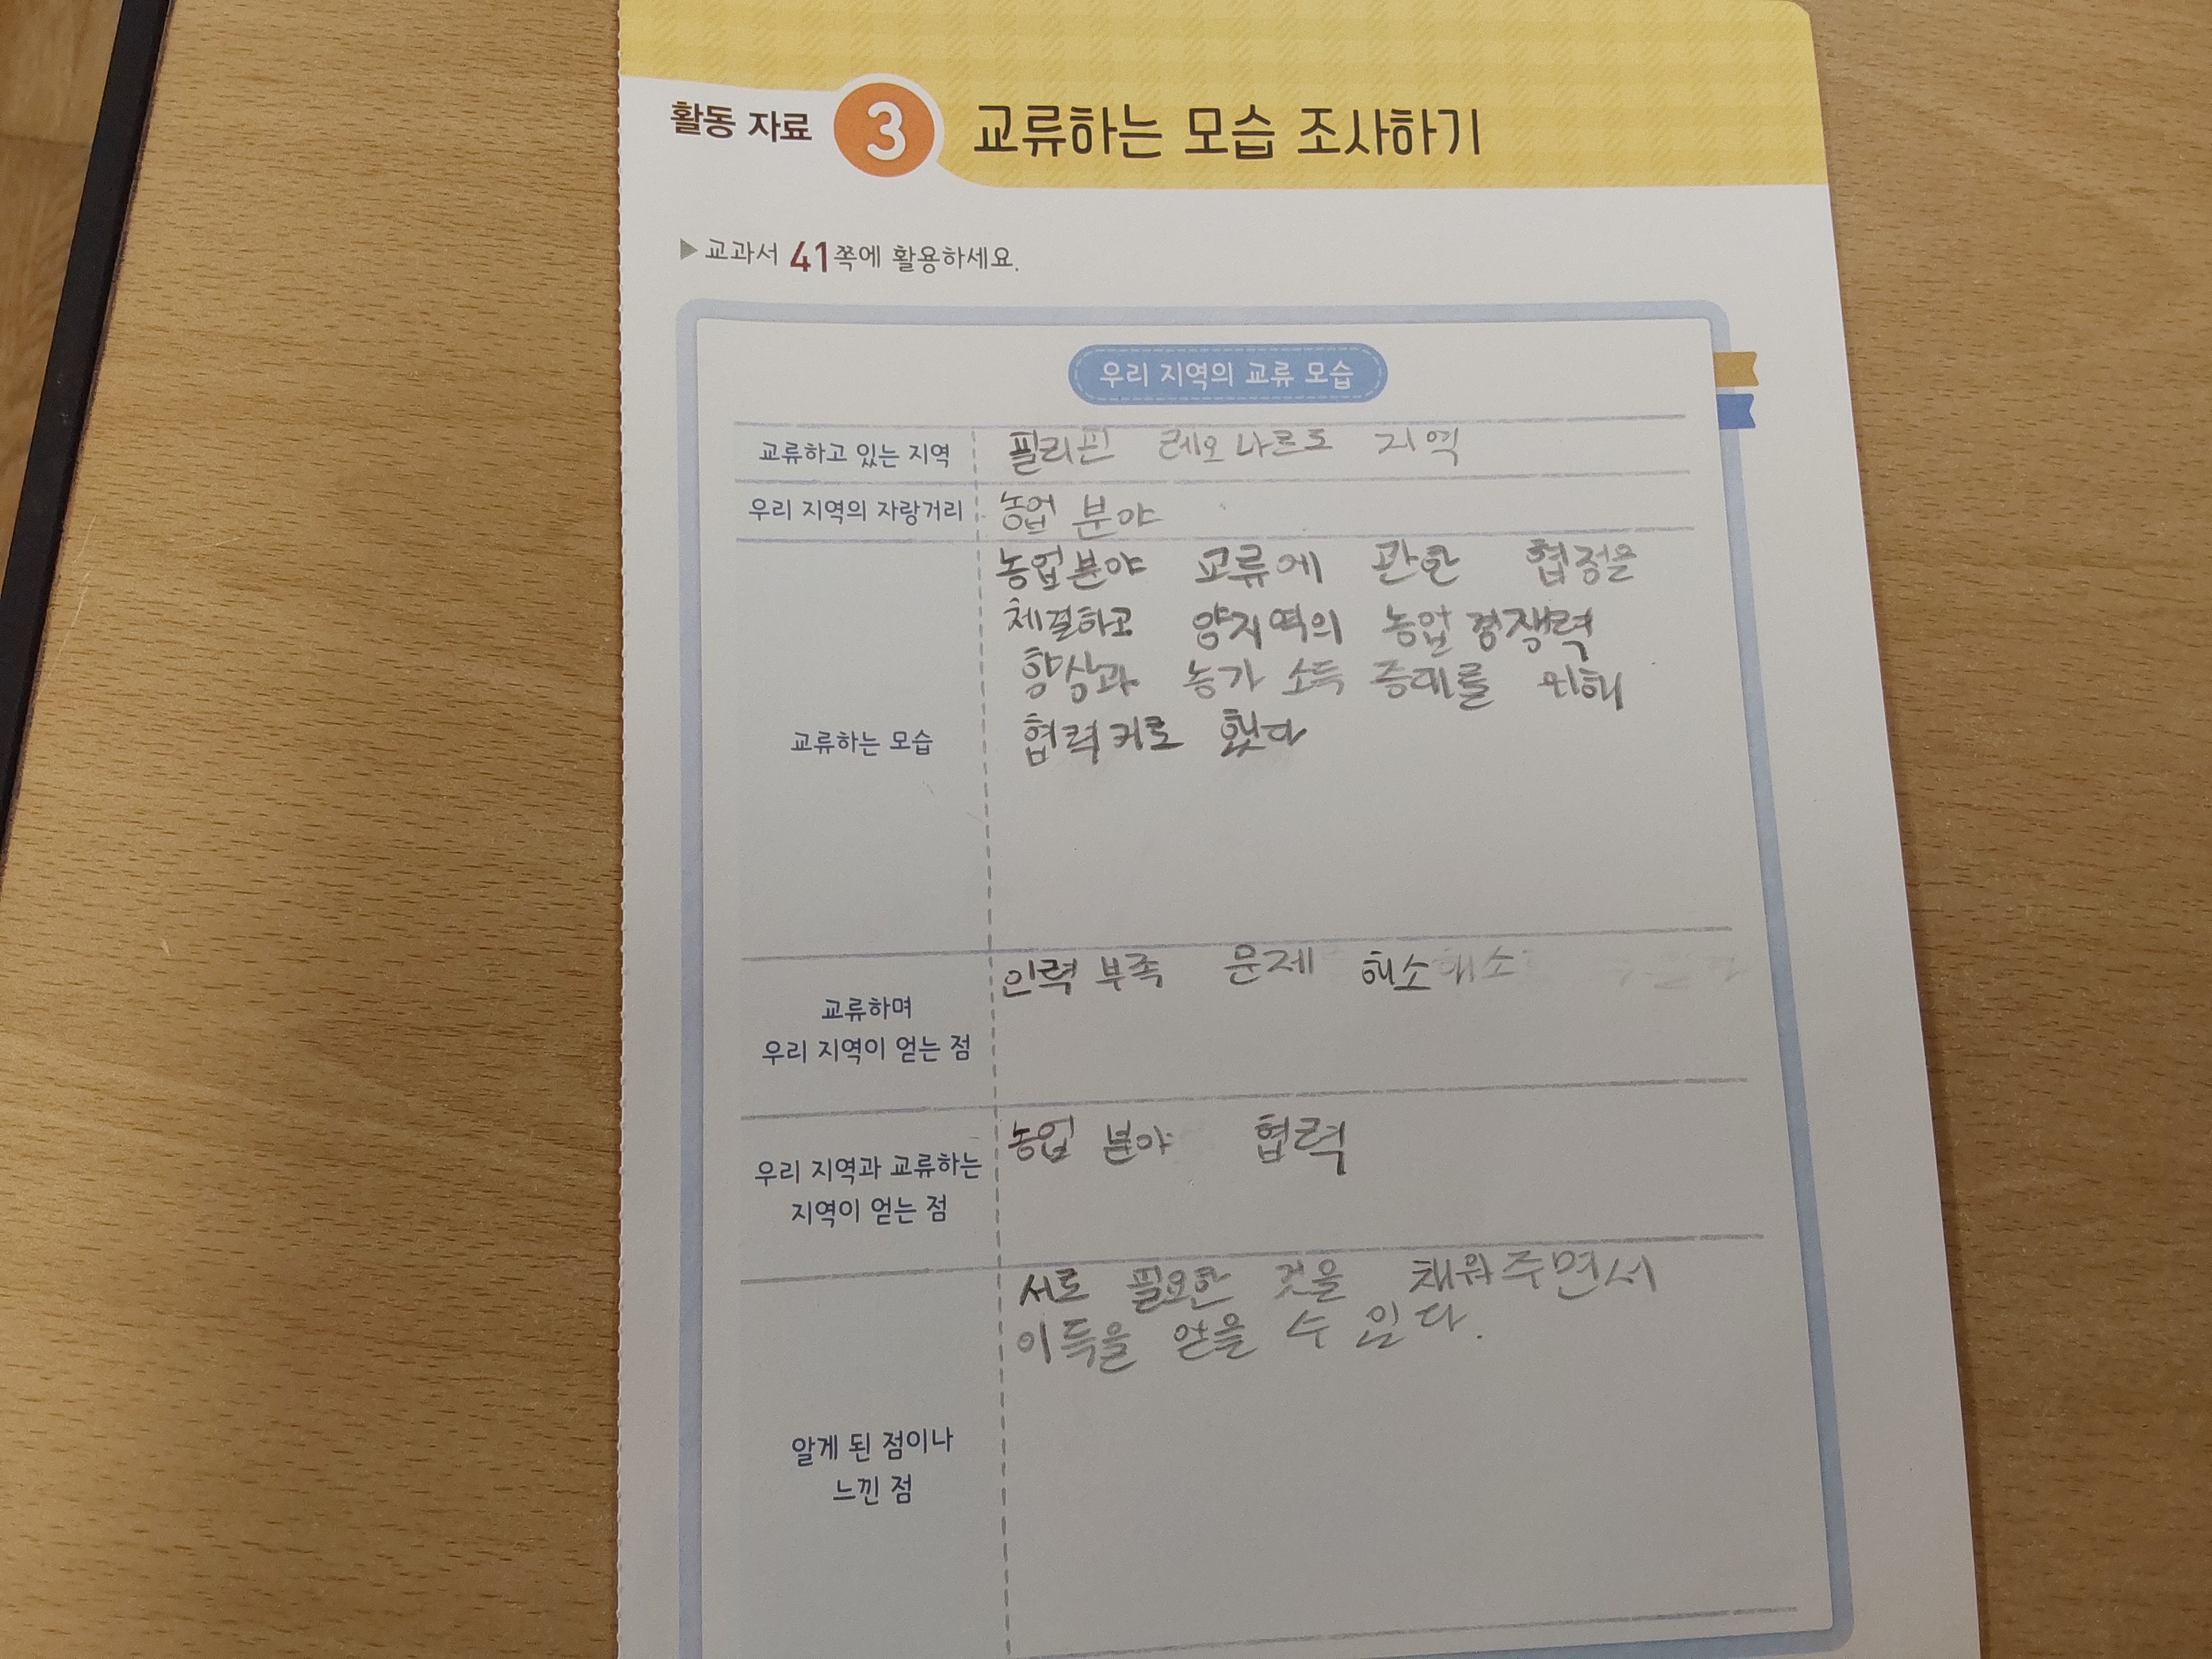 활동 자료 3 교류하는 모습 조사하기
▶ 교과서 41쪽에 활용하세요.
우리 지역의 교류 모습
교류하고 있는 지역 필리핀 레오나르도 지역
우리 지역의 자랑거리 농업 분야
교류하는 모습
농업분야 교류에 관한 협정을
체결하고 양지역의 농업 경쟁력
향상과 농가 소득 증대를 위해
협력키로 했다
교류하며
우리 지역이 얻는 점
인력 부족 문제 해소
우리 지역과 교류하는
지역이 얻는 점
농업 분야 협력
알게 된 점이나
느낀 점
서로 필요한 것을 채워주면서
이득을 얻을 수 있다.